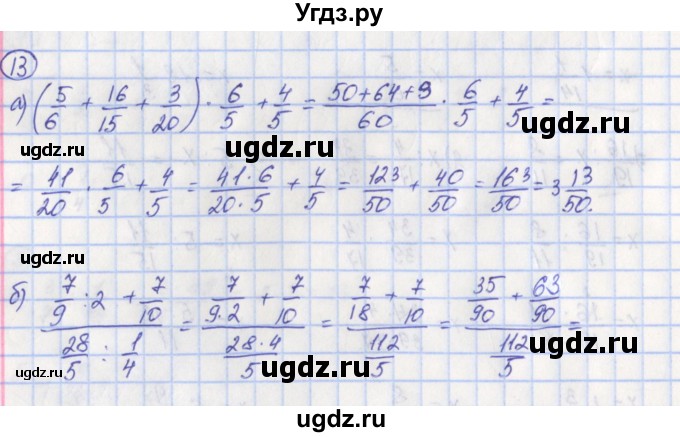 Угдз.ру
13
а) (5/6 + 16/15 + 3/20) · 6/5 + 4/5 = (50+64+9)/60 · 6/5 + 4/5 =
ugdz.ru ugdz.ru ugdz.ru
= 41/20 · 6/5 + 4/5 = (41·6)/(20·5) + 4/5 = 123/50 + 40/50 = 163/50 = 3 13/50.
ugdz.ru ugdz.ru
б) (7/9 : 2 + 7/10)/(28/5 : 1/4) = (7/(9·2) + 7/10)/((28·4)/5) = (7/18 + 7/10)/(112/5) = (35/90 + 63/90)/(112/5) =
ugdz.ru ugdz.ru ugdz.ru
ugdz.ru